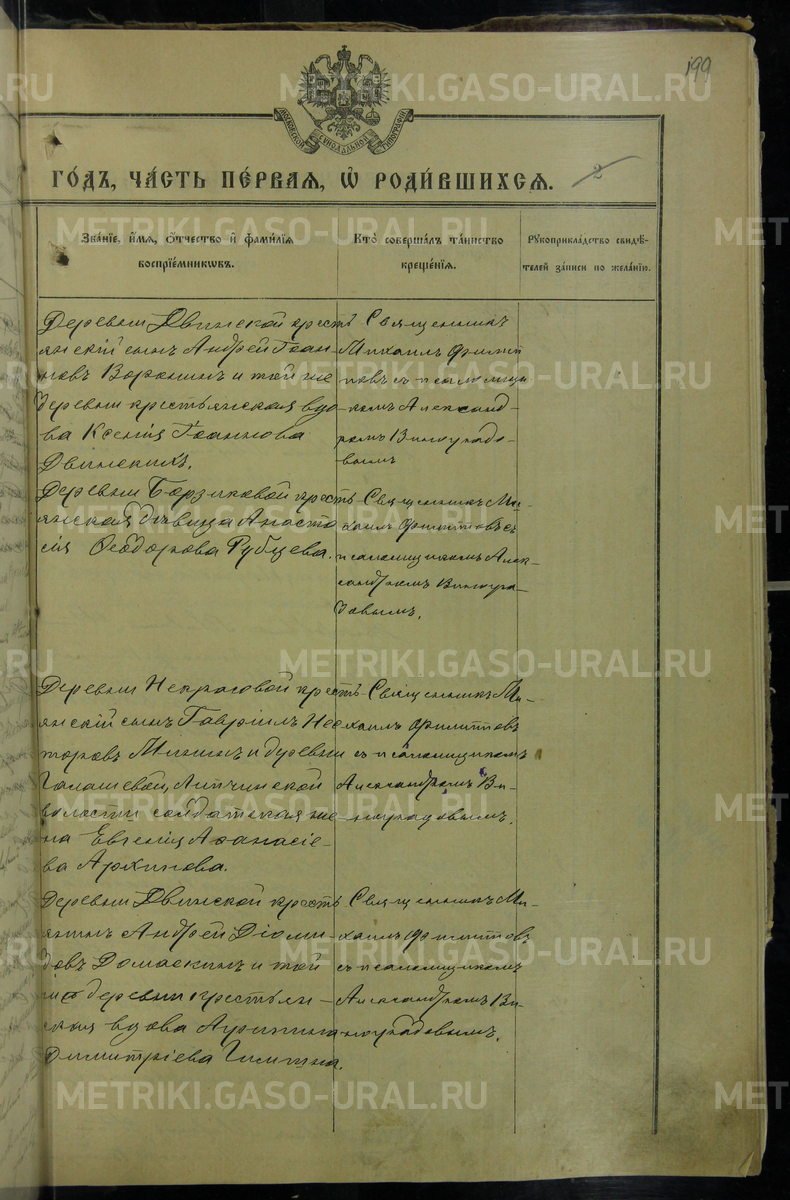 199
МОСКОВСКОЙ СѴНОДАЛЬНОЙ ТИПОГРАФІИ
ГО́ДЪ, ЧА́СТЬ ПЕ́РВАЯ, Ѡ҆ РОДИ́ВШИХСЯ.
2
Зва́нїе, и҆́мѧ, ѻ҆́тчество и҆ фами́лїѧ
воспрїе́мникѡвъ.
Кто̀ соверша́лъ та́инство
креще́нїѧ.
Рꙋкоприкла́дство свидѣ́-
телей за́писи по жела́нїю.
Деревни Двинской кресть
янскій сынъ Андрей Іоан-
новъ Воронинъ и той же
деревни крестьянская вдо
ва Ксенія Іоаннова
Двинскихъ.
Священникъ
Михаилъ Филип
повъ съ псаломщи
комъ Александ-
ромъ Виноградо-
вымъ
Деревни Борзиковой кресть
янская дѣвица Анаста
сія Ѳеодорова Рубцева.
Священникъ Ми-
хаилъ Филипповъ съ
псаломщикомъ Алек-
сандромъ Виногра-
довымъ.
Деревни Некрасовой кресть
янскій сынъ Гавріилъ Нес
торовъ Мининъ и деревни
Галашевой, Липчинской
волости солдатская же-
на Евгенія Аѳанасіе-
ва Архипова.
Священникъ Ми-
хаилъ Филипповъ
съ псаломщикомъ
Александромъ Ви-
ноградовымъ.
Деревни Двинской кресть
янинъ Андрей Діоми-
довъ и той
же деревни крестьян-
ская вдова Агрипина
Димитріева
Священникъ Ми-
хаилъ Филипповъ
съ псаломщикомъ
Александромъ Ви-
ноградовымъ.
METRIKI.GASO-URAL.RU